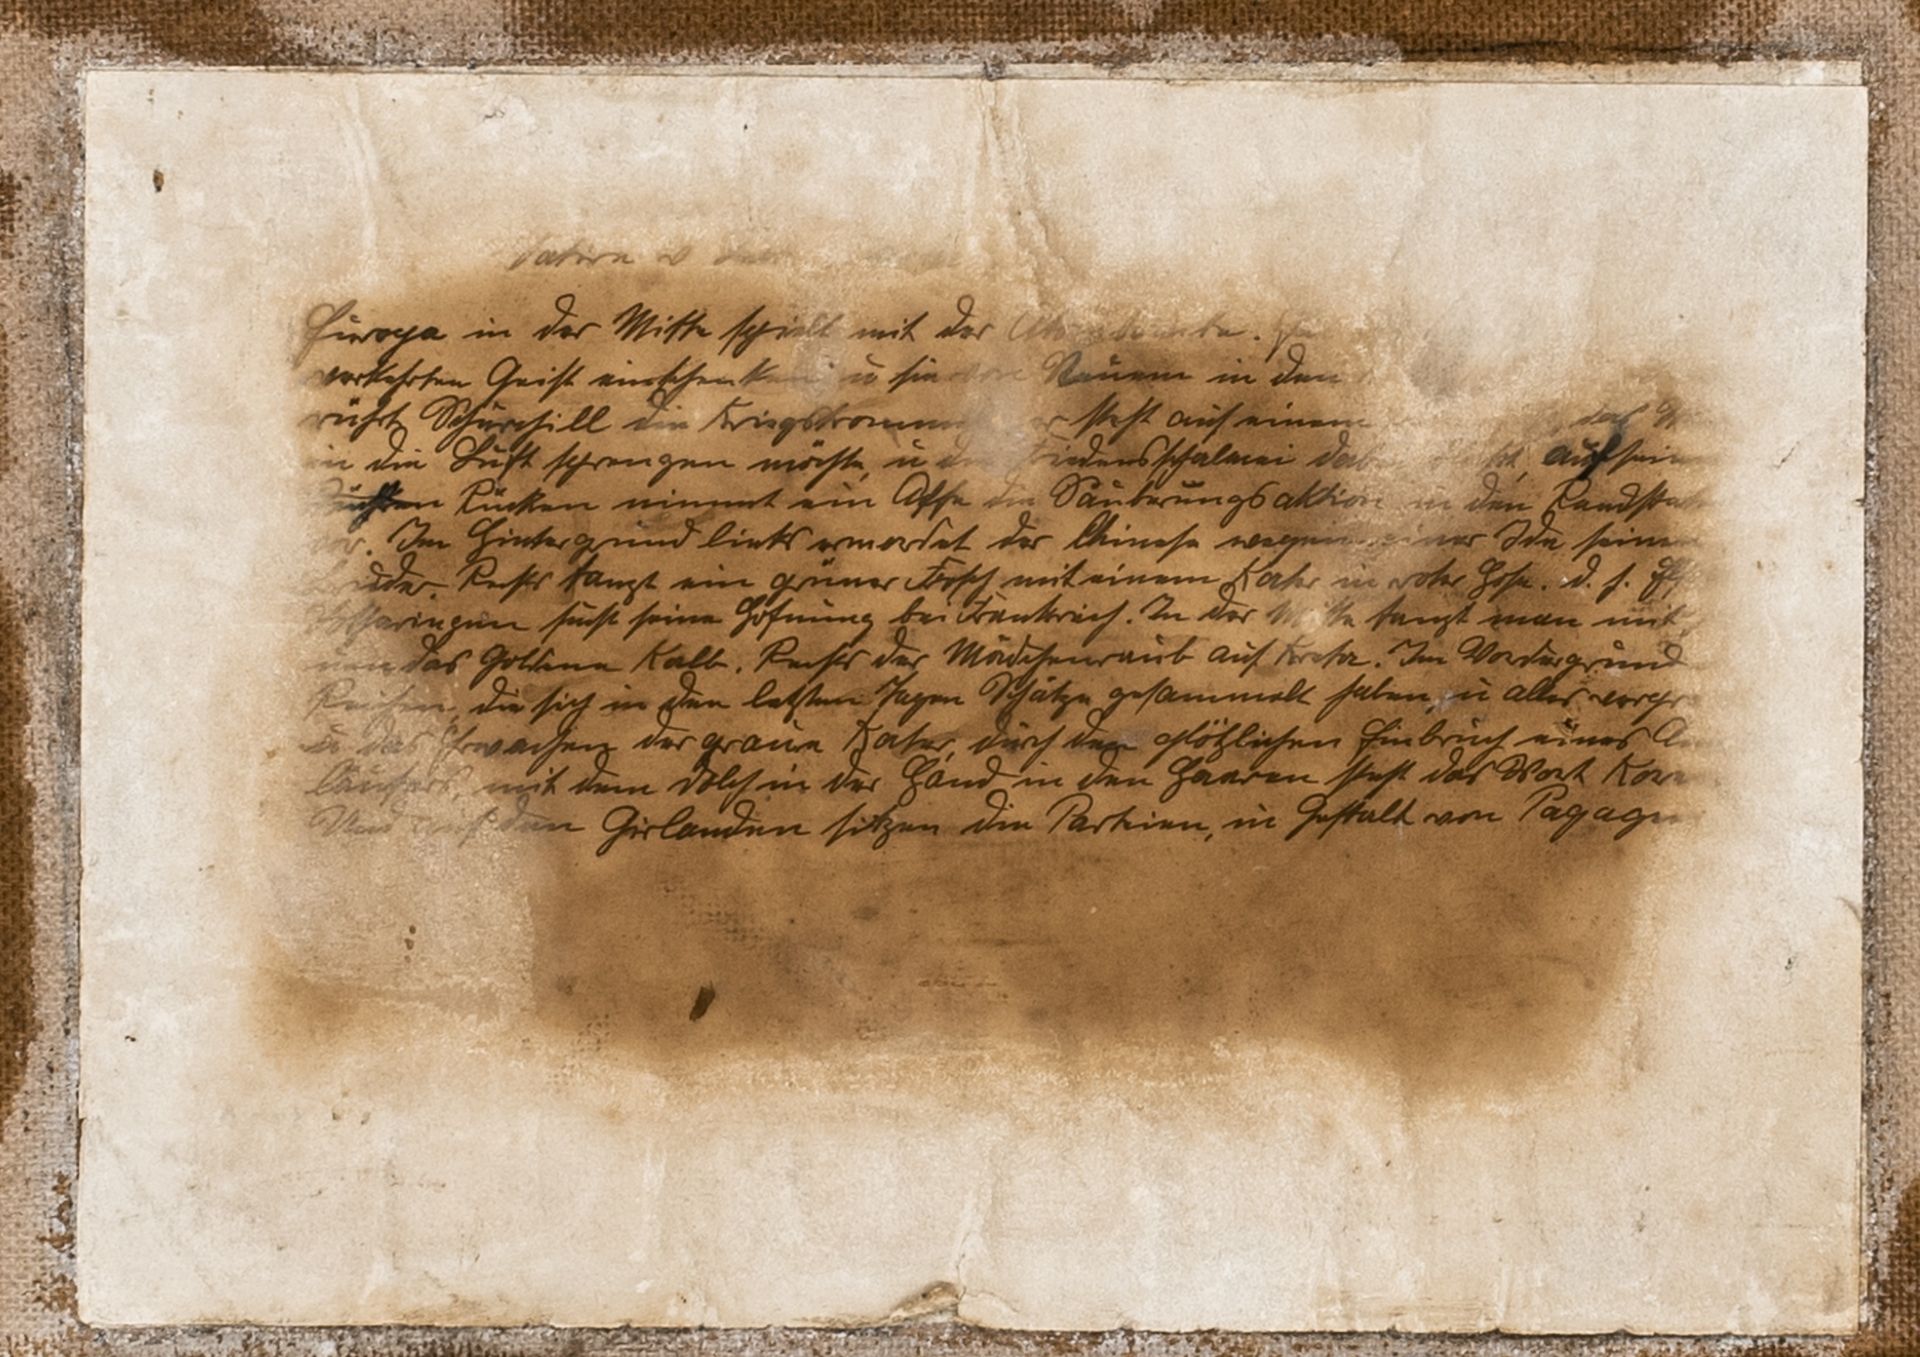 Satire
Europa in der Mitte spielt mit der Atombombe.
verkehrten Geist einschenken u sie von Neuem in den
rührt Schurchill die Kriegstrommel er steht auf einem das
in die Luft sprengen möchte, u die Friedensschalmei dabei auf seinem
Rücken nimmt ein Affe die Säuberungsaktion in den Randstaaten
vor. Im Hintergrund links ermordet der Chinese wegen einer Ide seinen
Bruder. Rechts tanzt ein grüner Frosch mit einem Kater in roter Hose. d. h.
Lotharingen sucht seine Hofnung bei Frankreich. In der Mitte tanzt man mit
das Goldene Kalb. Rechts der Mädchenraub auf Kreta. Im Vordergrund
Reichen, die sich in den letzten Tagen Schätze gesammelt haben, u alles
u das Erwachen der graue Kater, durch den plötzlichen Einbruch eines
mit dem Dolch in der Hand in den Haaren steht das Wort
Und auf den Girlanden sitzen die Parteien, in Gestalt von